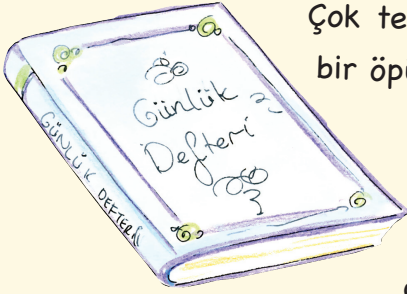 Çok te
bir öpü
Günlük
Defteri
GÜNLÜK DEFTERİ